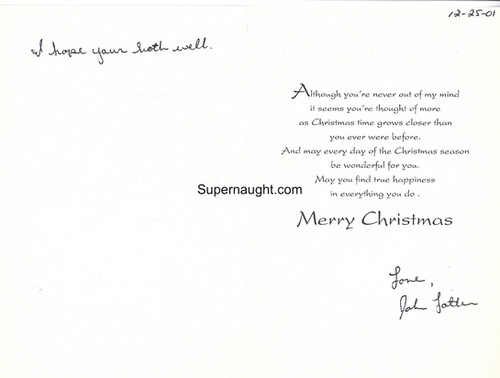 12-25-01
I hope your both well.
Although you're never out of my mind
it seems you're thought of more
as Christmas time grows closer than
you ever were before.
And may every day of the Christmas season
be wonderful for you.
May you find true happiness
in everything you do .
Merry Christmas
Supernaught.com
Love,
John